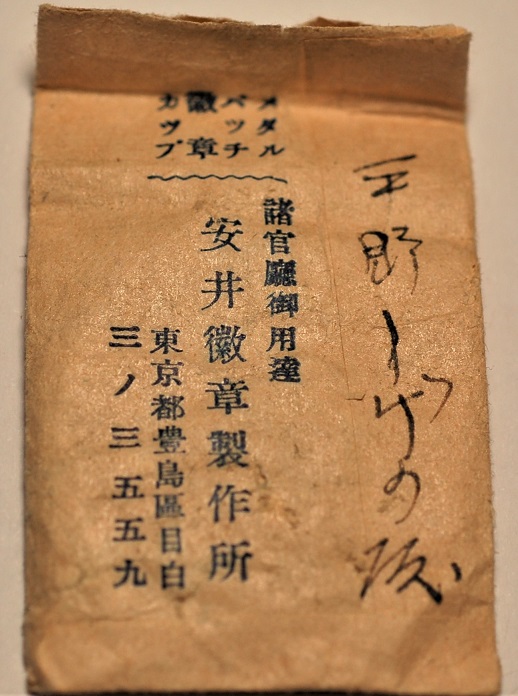 平野しげの殿
メダル
バツチ
徽章
カツプ
諸官廳御用達
安井徽章製作所
東京都豊島區目白
三ノ三五五九